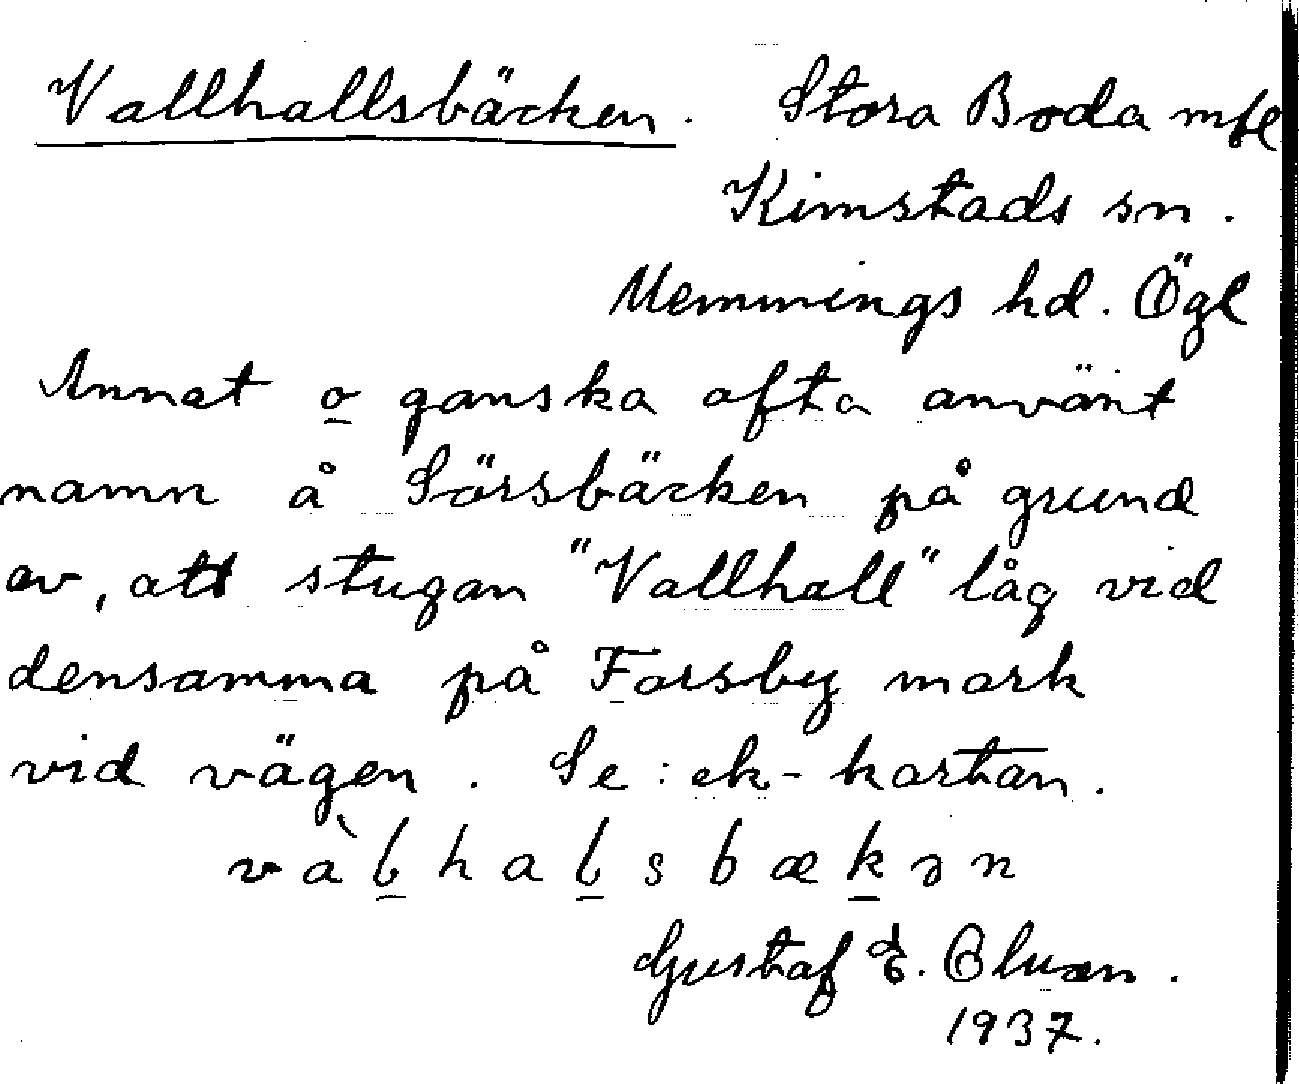 Vallhallsbäcken. Stora Boda mfl
Kimstads sn.
Memmings hd. Ögl
Annat o ganska ofta använt
namn å Sörsbäcken på grund
av, att stugan "Vallhall" låg vid
densamma på Forsby mark
vid vägen. Se: ek-kartan.
vàlhalsbækən
Gustaf E.
1937.